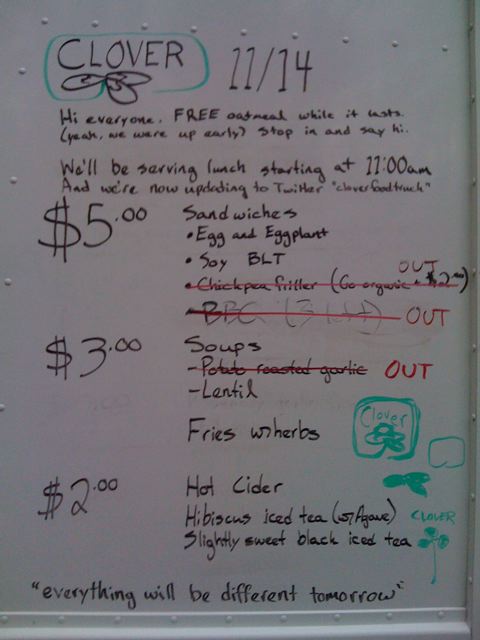 CLOVER 11/14
Hi everyone. FREE oatmeal while it lasts.
(yeah, we were up early) Stop in and say hi.
We'll be serving lunch starting at 11:00am
And we're now updating to Twitter "cloverfoodtruck"
$5.00 Sandwiches
• Egg and Eggplant
• Soy BLT
OUT
• Chickpea fritter (Go organic + $2.00)
• BBQ (3 left) OUT
$3.00 Soups
- Potato roasted garlic OUT
- Lentil
Clover
Fries w/herbs
$2.00 Hot Cider
Hibiscus iced tea (w/Agave) CLOVER
Slightly sweet black iced tea
"everything will be different tomorrow"